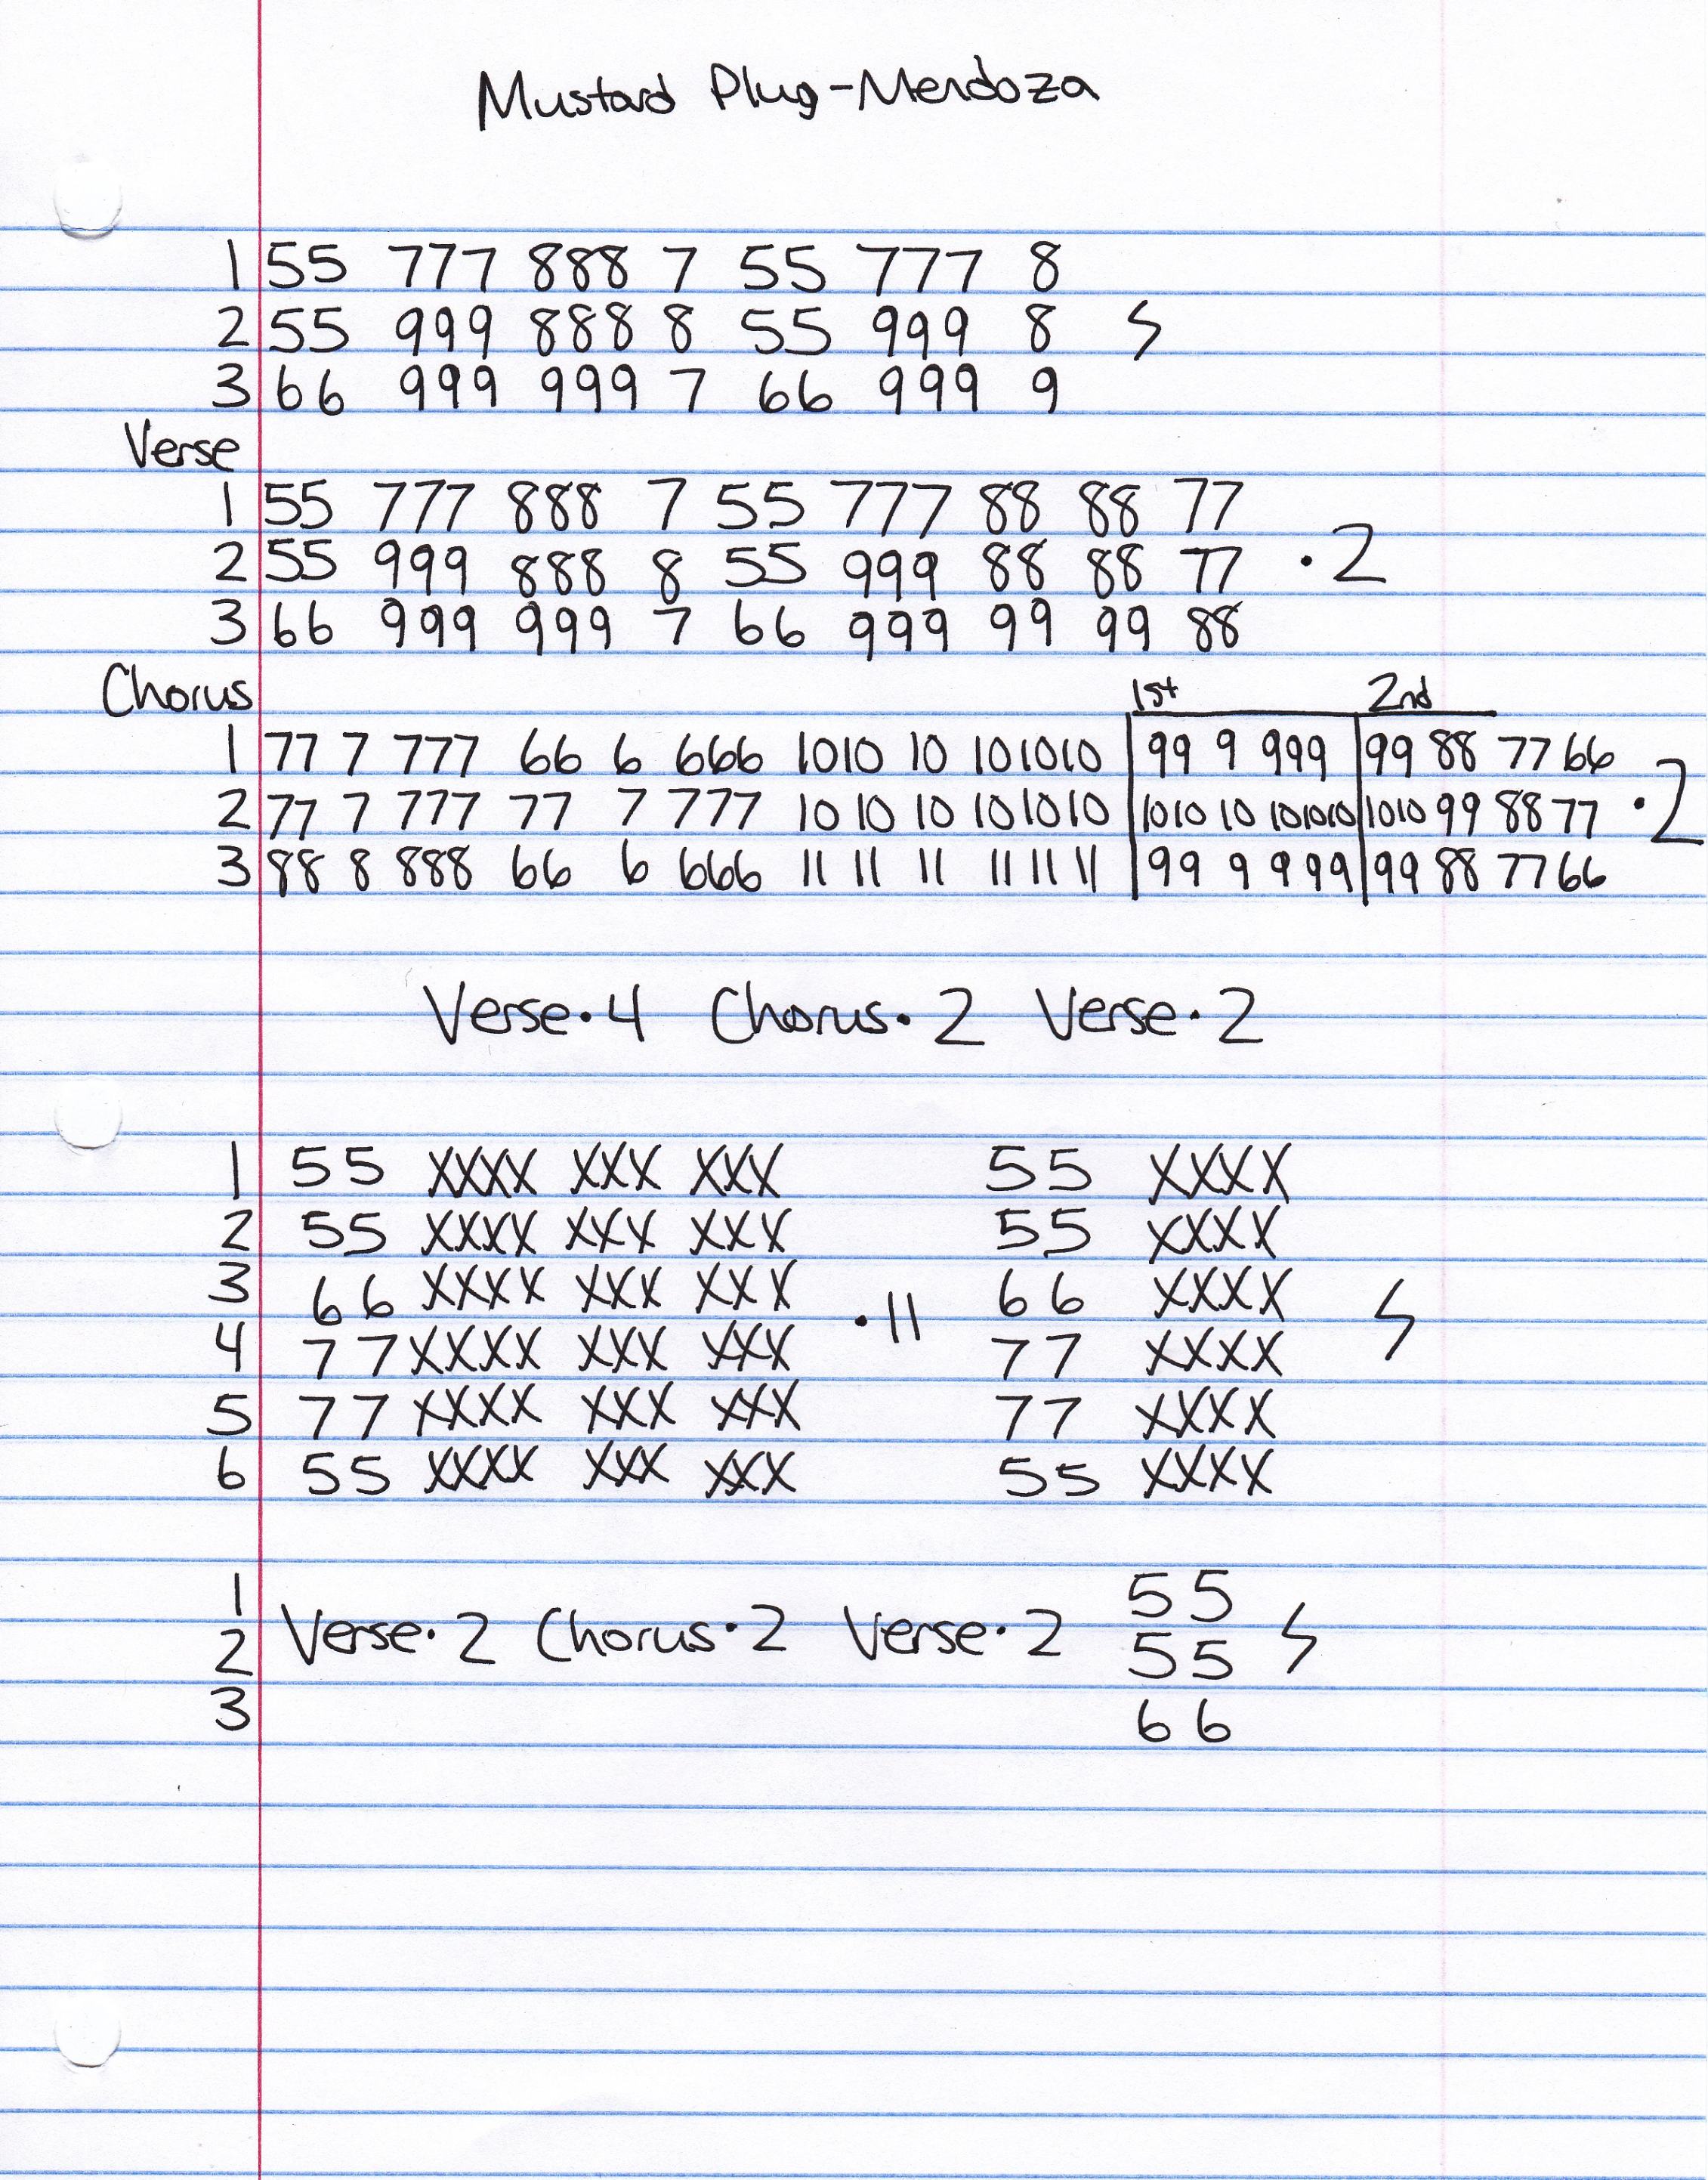 Mustard Plug-Mendoza
1 55 777 888 7 55 777 8
2 55 999 888 8 55 999 8
3 66 999 999 7 66 999 9
Verse
1 55 777 888 7 55 777 88 88 77
2 55 999 888 8 55 999 88 88 77 ·2
3 66 999 999 7 66 999 99 99 88
Chorus 1st 2nd
1 77 7 777 66 6 666 1010 10 101010 99 9 999 99 88 77 66
2 77 7 777 77 7 777 10 10 10 10 10 10 1010 10 101010 1010 99 88 77 ·2
3 88 8 888 66 6 666 11 11 11 11 11 11 99 9 999 99 88 77 66
Verse·4 Chorus·2 Verse·2
1 55 XXXX XXX XXX 55 XXXX
2 55 XXXX XXX XXX 55 XXXX
3 66 XXXX XXX XXX ·11 66 XXXX
4 77 XXXX XXX XXX 77 XXXX
5 77 XXXX XXX XXX 77 XXXX
6 55 XXXX XXX XXX 55 XXXX
1 55
2 Verse·2 Chorus·2 Verse·2 55
3 66